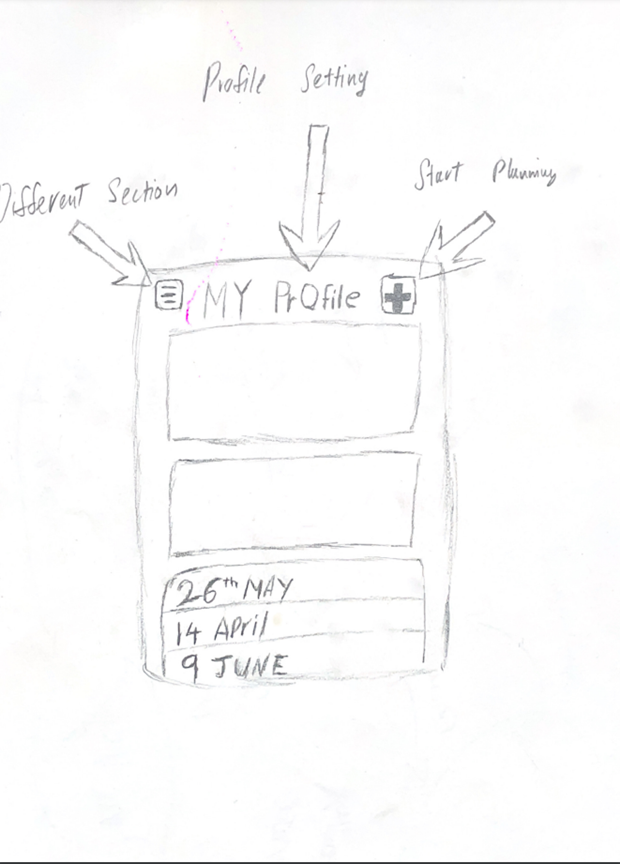 Profile Setting
Different Section
Start Planning
MY PrOfile
26th MAY
14 April
9 JUNE